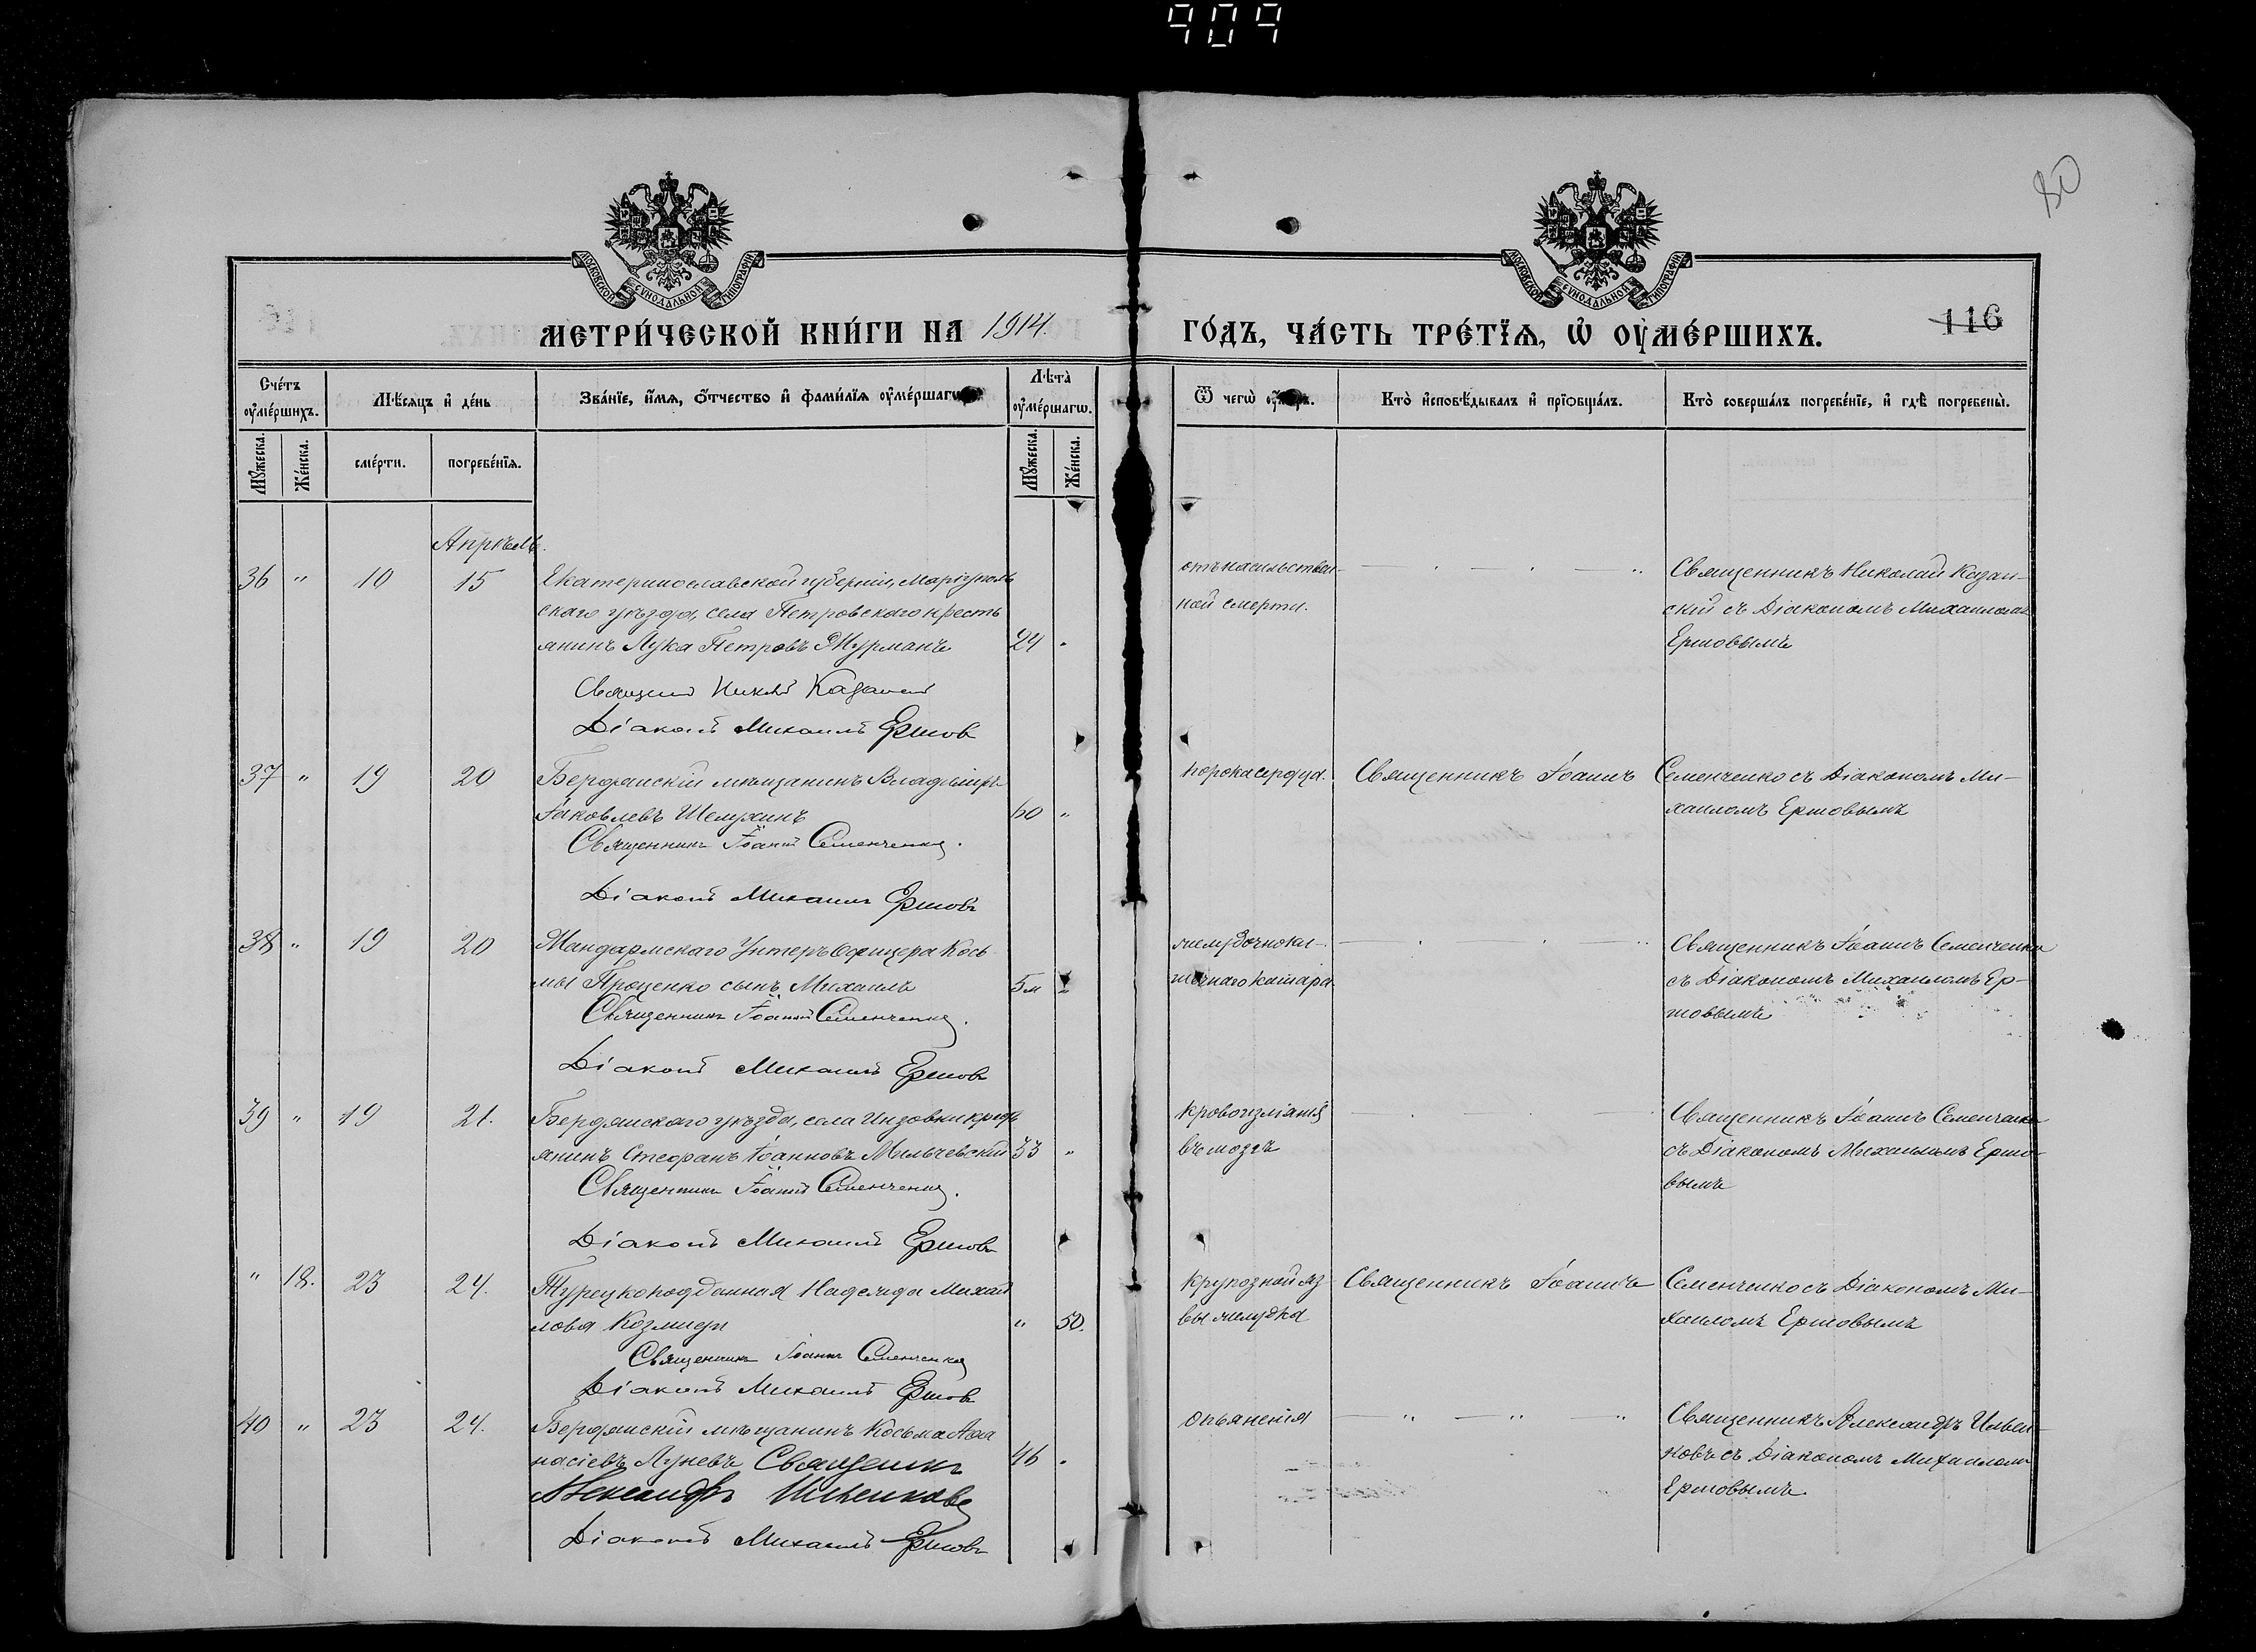 909
80
МОСКОВСКОЙ СѴНОДАЛЬНОЙ ТИПОГРАФІИ
МОСКОВСКОЙ СѴНОДАЛЬНОЙ ТИПОГРАФІИ
МЕТРИ́ЧЕСКОЙ КНИ́ГИ НА 1914.
ГО́ДЪ, ЧА́СТЬ ТРЕ́ТЇѦ, Ѡ҆ ОУ҆МЕ́РШИХЪ.
116
Сче́тъ оу҆ме́ршихъ.
Мѣ́сяцъ и҆ де́нь
Зва́нїе, и҆́мѧ, ѻ҆́тчество и҆ фами́лїѧ оу҆ме́ршагѡ
Лѣта̀ оу҆ме́ршагѡ.
Ѿ чегѡ̀
Кто̀ и҆сповѣ́дывалъ и҆ прїѡбща́лъ.
Кто̀ соверша́лъ погребе́нїе, и҆ гдѣ̀ погребены̀.
Мꙋ́жеска.
Же́нска.
сме́рти.
погребе́нїѧ.
Мꙋ́жеска.
Же́нска.
Апрѣль.
36 " 10 15 Екатеринославской губерніи, Маріуполь
скаго уѣзда, села Петровскаго кресть
янинъ Лука Петровъ Журманъ 24 "
Священникъ Николай Казанскій
Діаконъ Михаилъ Ершовъ
отъ насильствен-
ной смерти.
Священникъ Николай Казан-
скій съ Діакономъ Михаиломъ
Ершовымъ
37 " 19 20 Бердянскій мѣщанинъ Владиміръ
Іаковлевъ Шелухинъ 60 "
Священникъ Іоаннъ Семенченко.
Діаконъ Михаилъ Ершовъ
порока сердца. Священникъ Іоаннъ Семенченко съ Діакономъ Ми-
хаиломъ Ершовымъ
38 " 19 20 Жандармскаго Унтеръ Офицера Кось
мы Проценко сынъ Михаилъ 5м "
Священникъ Іоаннъ Семенченко.
Діаконъ Михаилъ Ершовъ
желудочно ки-
шечнаго катара
Священникъ Іоаннъ Семенченко
съ Діакономъ Михаиломъ Ер-
шовымъ
39 " 19 21. Бердянскаго уѣзда, села Инзовки крест
янинъ Стефанъ Іоанновъ Мильчевскій 53 "
Священникъ Іоаннъ Семенченко.
Діаконъ Михаилъ Ершовъ
кровоизліянія
въ мозгъ
Священникъ Іоаннъ Семенченко
съ Діакономъ Михаиломъ Ершо-
вымъ
" 18. 23 24. Турецкоподданная Надежда Михаи
лова Козмиди " 50.
Священникъ Іоаннъ Семенченко
Діаконъ Михаилъ Ершовъ
крупозной яз
вы желудка
Священникъ Іоаннъ Семенченко съ Діакономъ Ми-
хаиломъ Ершовымъ
40 " 23 24. Бердянскій мѣщанинъ Косьма Афа
насіевъ Луневъ Священникъ 46 "
Александръ Ильенковъ
Діаконъ Михаилъ Ершовъ
опьянения
Священникъ Александръ Ильен-
ковъ съ Діакономъ Михаиломъ
Ершовымъ.